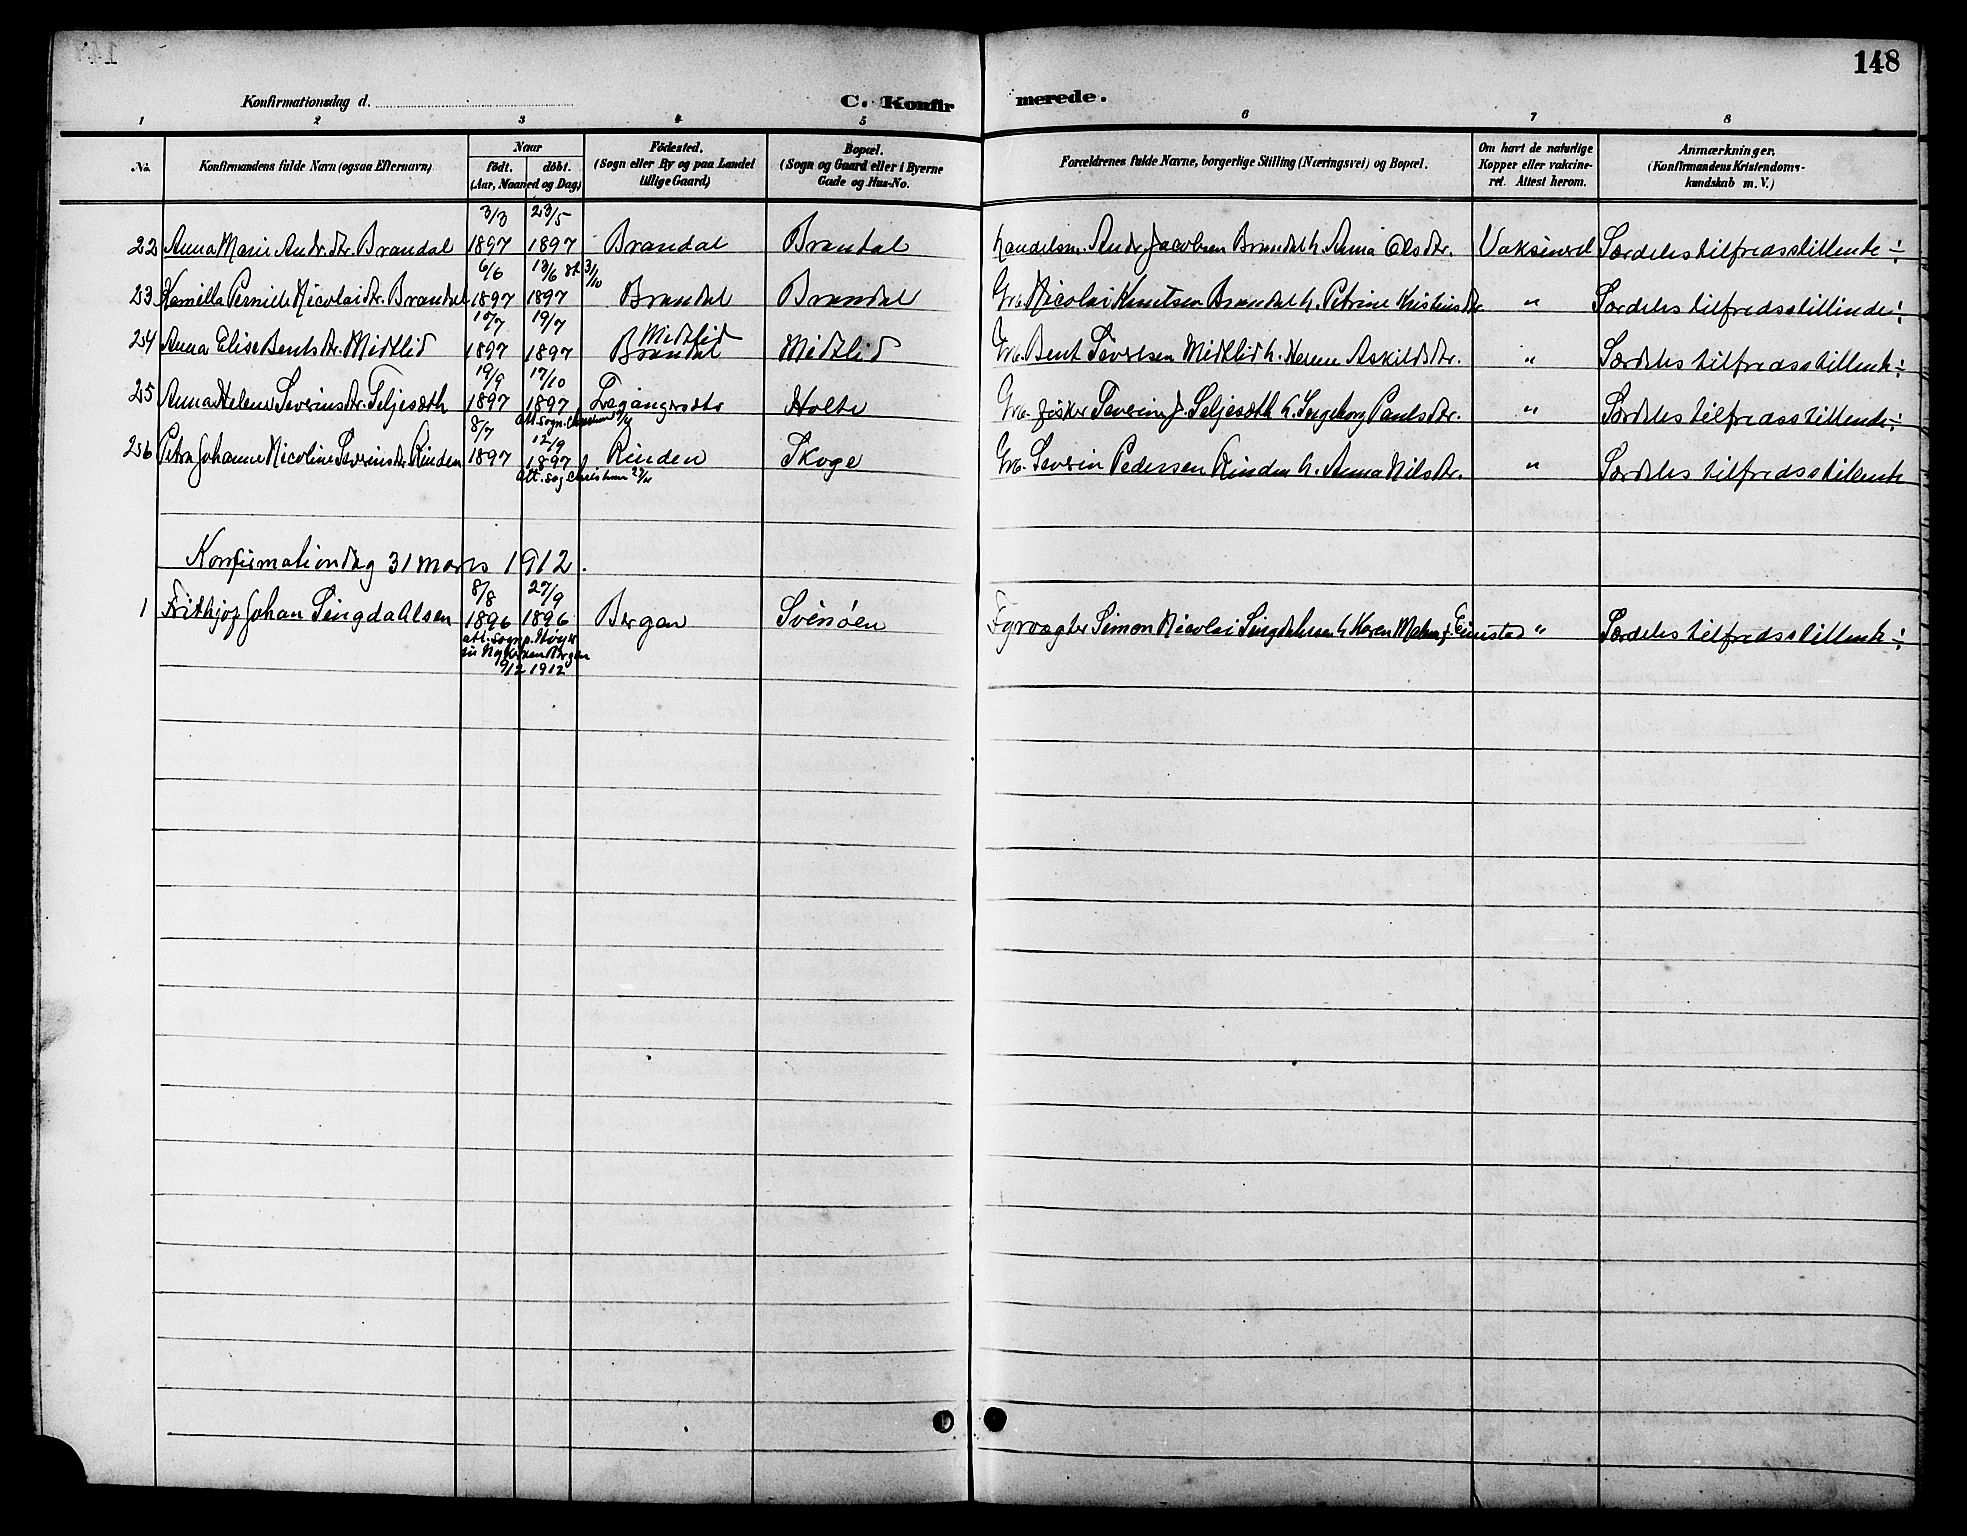 148
Konfirmationsdag d.
C. Konfirmerede.
1 2 3 4 5 6 7 8
No. Konfirmandens fulde Navn (ogsaa Efternavn) Naar født. døbt. (Aar, Maaned og Dag) Fødested. (Sogn eller By og paa Landet tillige Gaard) Bopæl. (Sogn og Gaard eller i Byerne Gade og Hus-No. Forældrenes fulde Navne, borgerlige Stilling (Næringsvei) og Bopæl. Om havt de naturlige Kopper eller vakcineret. Attest herom. Anmærkninger. (Konfirmandens Kristendomskundskab m. V.)
3/3 23/5
22 Anna Marie Andr.dtr. Brandal 1897 1897 Brandal Brandal Handelsm. Andr. Jacobsen Brandal h. Anna Olsdtr. Vaksinerd Særdeles tilfredsstillende ÷
6/6 13/6 st 3/10
23 Kamilla Pernille Nicolaidtr. Brandal 1897 1897 Brandal Brandal Grb. Nicolai Knutsen Brandal h. Petrine Kristinsdtr. " Særdeles tilfredsstillende ÷
10/7 19/7 Midtlid
24 Anna Elise Bentsdtr. Midtlid 1897 1897 Brandal Midtlid Grb. Bent Severtsen Midtlid h. Hanna Askildsdtr. " Særdeles tilfredsstillende ÷
19/9 17/10
25 Anna Helene Severinsdtr. Seljesæth 1897 1897 Holte Grb. fisker Severin J. Seljesæth h. Ingeborg Paulsdtr. " Særdeles tilfredsstillende ÷
att. sogn.
8/7 12/9
26 Petra Johanne Nicoline Severinsdtr. Rinden 1897 1897 Rinden Skoge Grb. Severin Pedersen Rinden h. Anna Nilsdtr. " Særdeles tilfredsstillende
att. sog
Konfirmationsdag 31 mars 1912.
8/8 27/9
1 Frithjof Johan Singdahlsen 1896 1896 Bergen Svinøen Fyrvagter Simon Nicolai Singdahlsen h. Karen Malene f. Eimstad " Særdeles tilfredsstillende ÷
att. sognp. Høyer
til Nykirken Bergen
9/12 1912